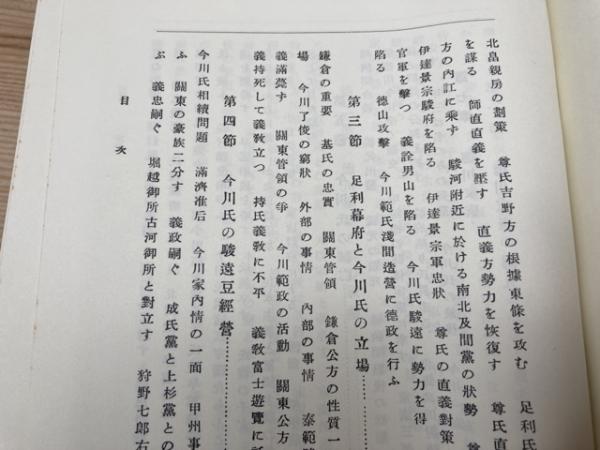 北畠親房の劃策　尊氏吉野方の根據東條を攻む　足利氏
を謀る　師直直義を壓す　直義方勢力を恢復す　尊氏直
方の內訌に乘ず　駿河附近に於ける南北及間黨の狀勢
伊達景宗駿府を陷る　伊達景宗軍忠狀　尊氏の直義對策
官軍を擊つ　義詮男山を陷る　今川氏駿遠に勢力を得
陷る　德山攻擊　今川範氏淺間造營に德政を行ふ
第三節　足利幕府と今川氏の立場……
鎌倉の重要　基氏の忠實　關東管領　鎌倉公方の性質一
場　今川了俊の窮狀　外部の事情　內部の事情　泰範
義滿薨ず　關東管領の爭　今川範政の活動　關東公方
義持死して義敎立つ　持氏義敎に不平　義敎富士遊覽に
第四節　今川氏の駿遠豆經營……
今川氏相續問題　滿濟准后　今川家內情の一面　甲州事
ふ　關東の豪族二分す　義政嗣ぐ　成氏黨と上杉黨との
ぶ　義忠嗣ぐ　堀越御所古河御所と對立す　狩野七郎右
目次